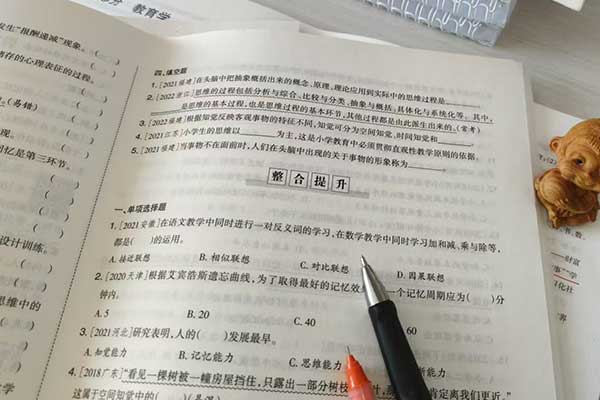 分 教育学
发生“报酬递减”现象。
储存的心理表征的过程。
(易错)
现。
回忆是第三环节。
设计训练。
思维中的
四、填空题
1. [2021福建]在头脑中把抽象概括出来的概念、原理、理论应用到实际中的思维过程是
2. [2022浙江]思维的过程包括分析与综合、比较与分类、抽象与概括、具体化与系统化等。其中,
是思维的基本过程,也是思维过程的基本环节,其他过程都是由此派生出来的。(常考)
3. [2022福建]根据知觉反映客观事物的特征不同,知觉可分为空间知觉、时间知觉和
4. [2021江苏]小学生的思维以 为主,这是小学教育中必须贯彻直观性教学原则的依据。
5. [2021福建]当事物不在面前时,人们在头脑中出现的关于事物的形象称为
整合提升
一、单项选择题
1. [2021安徽]在语文教学中同时进行一对反义词的学习,在数学教学中同时学习加和减、乘与除等,
都是( )的运用。
A. 接近联想 B. 相似联想 C. 对比联想 D. 因果联想
2. [2020天津]根据艾宾浩斯遗忘曲线,为了取得最好的记忆效 一个记忆周期应为( )分
钟内。
A. 5 B. 20 C. 40 60
3. [2021河北]研究表明,人的( )发展最早。
A. 知觉能力 B. 记忆能力 C. 思维能力
4. [2018广东]“看见一棵树被一幢房屋挡住,只露出一部分树枝 肯定离我们更近。”
这属于空间知觉中的( )。(易混)